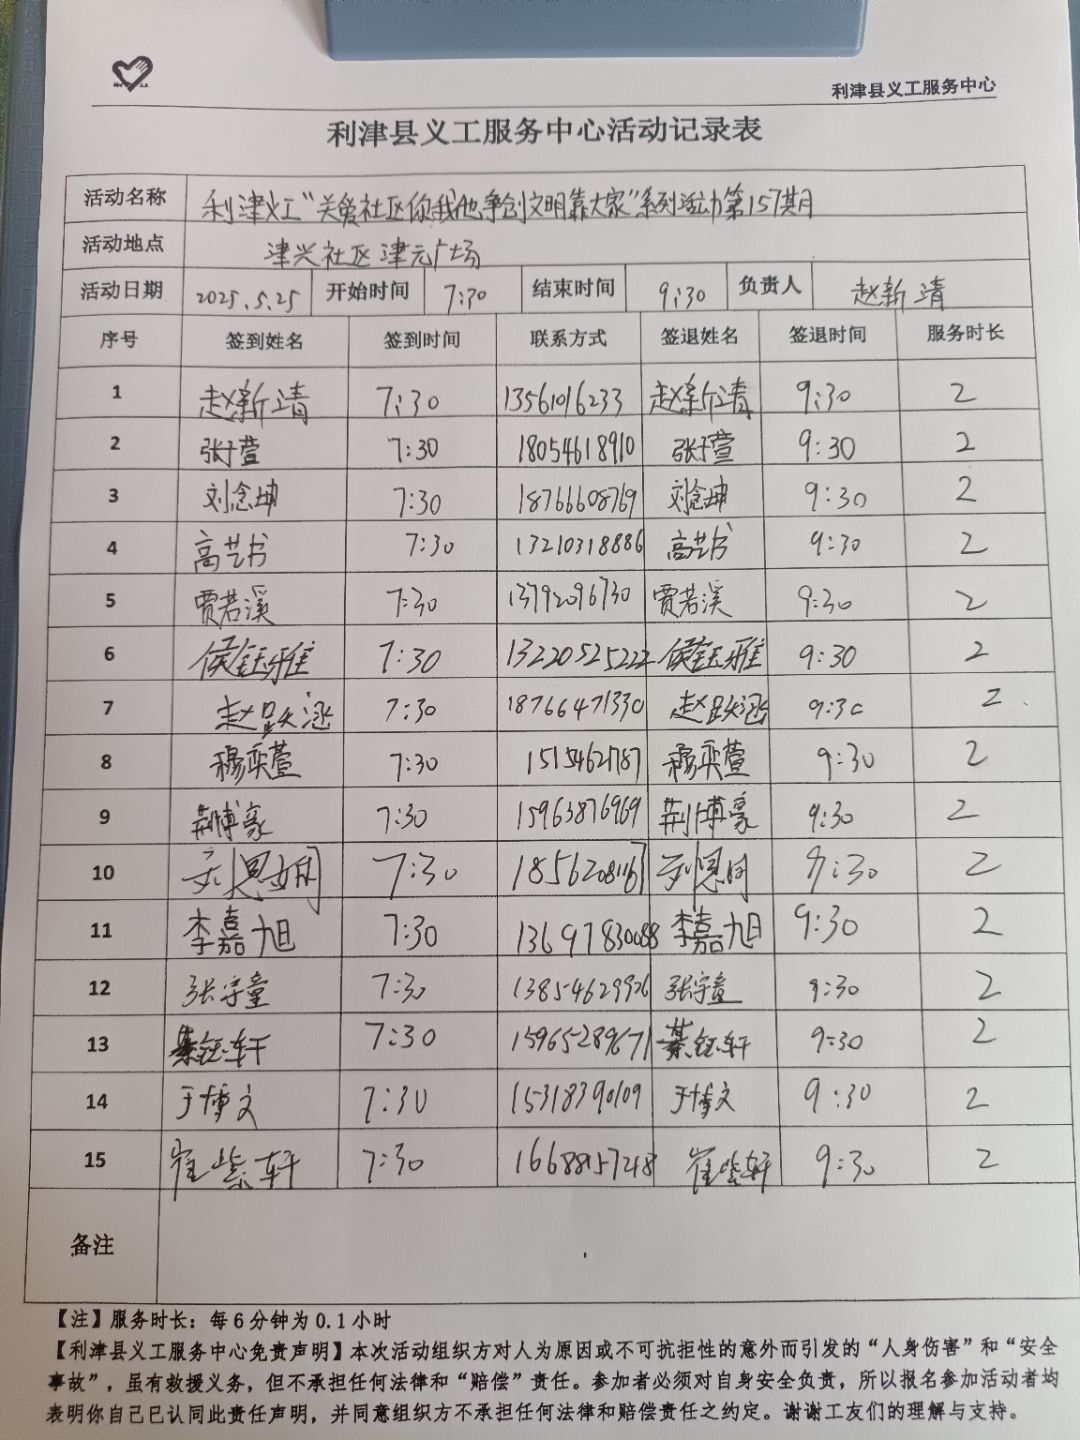 利津县义工服务中心
利津县义工服务中心活动记录表
活动名称 利津义工“关爱社区你我他争创文明靠大家”系列活动第157期
活动地点 津兴社区津元广场
活动日期 2025.5.25 开始时间 7:30 结束时间 9:30 负责人 赵新靖
序号 签到姓名 签到时间 联系方式 签退姓名 签退时间 服务时长
1 赵新靖 7:30 13561016233 赵新靖 9:30 2
2 张十萱 7:30 18054618910 张十萱 9:30 2
3 刘念坤 7:30 18766608769 刘念坤 9:30 2
4 高艺书 7:30 13210318886 高艺书 9:30 2
5 贾若溪 7:30 13792096730 贾若溪 9:30 2
6 侯钰雅 7:30 13220525222 侯钰雅 9:30 2
7 赵跃涵 7:30 18766471330 赵跃涵 9:30 2
8 穆奕萱 7:30 9:30 2
9 荆博豪 7:30 15963876969 荆博豪 9:30 2
10 7:30 9:30 2
11 李嘉旭 7:30 李嘉旭 9:30 2
12 张宇童 7:30 13854629926 张宇童 9:30 2
13 綦钰轩 7:30 15965289671 綦钰轩 9:30 2
14 于博文 7:30 15318390109 于博文 9:30 2
15 崔紫轩 7:30 16688157248 崔紫轩 9:30 2
备注
【注】服务时长：每6分钟为0.1小时
【利津县义工服务中心免责声明】本次活动组织方对人为原因或不可抗拒性的意外而引发的“人身伤害”和“安全
事故”，虽有救援义务，但不承担任何法律和“赔偿”责任。参加者必须对自身安全负责，所以报名参加活动者均
表明你自己已认同此责任声明，并同意组织方不承担任何法律和赔偿责任之约定。谢谢工友们的理解与支持。